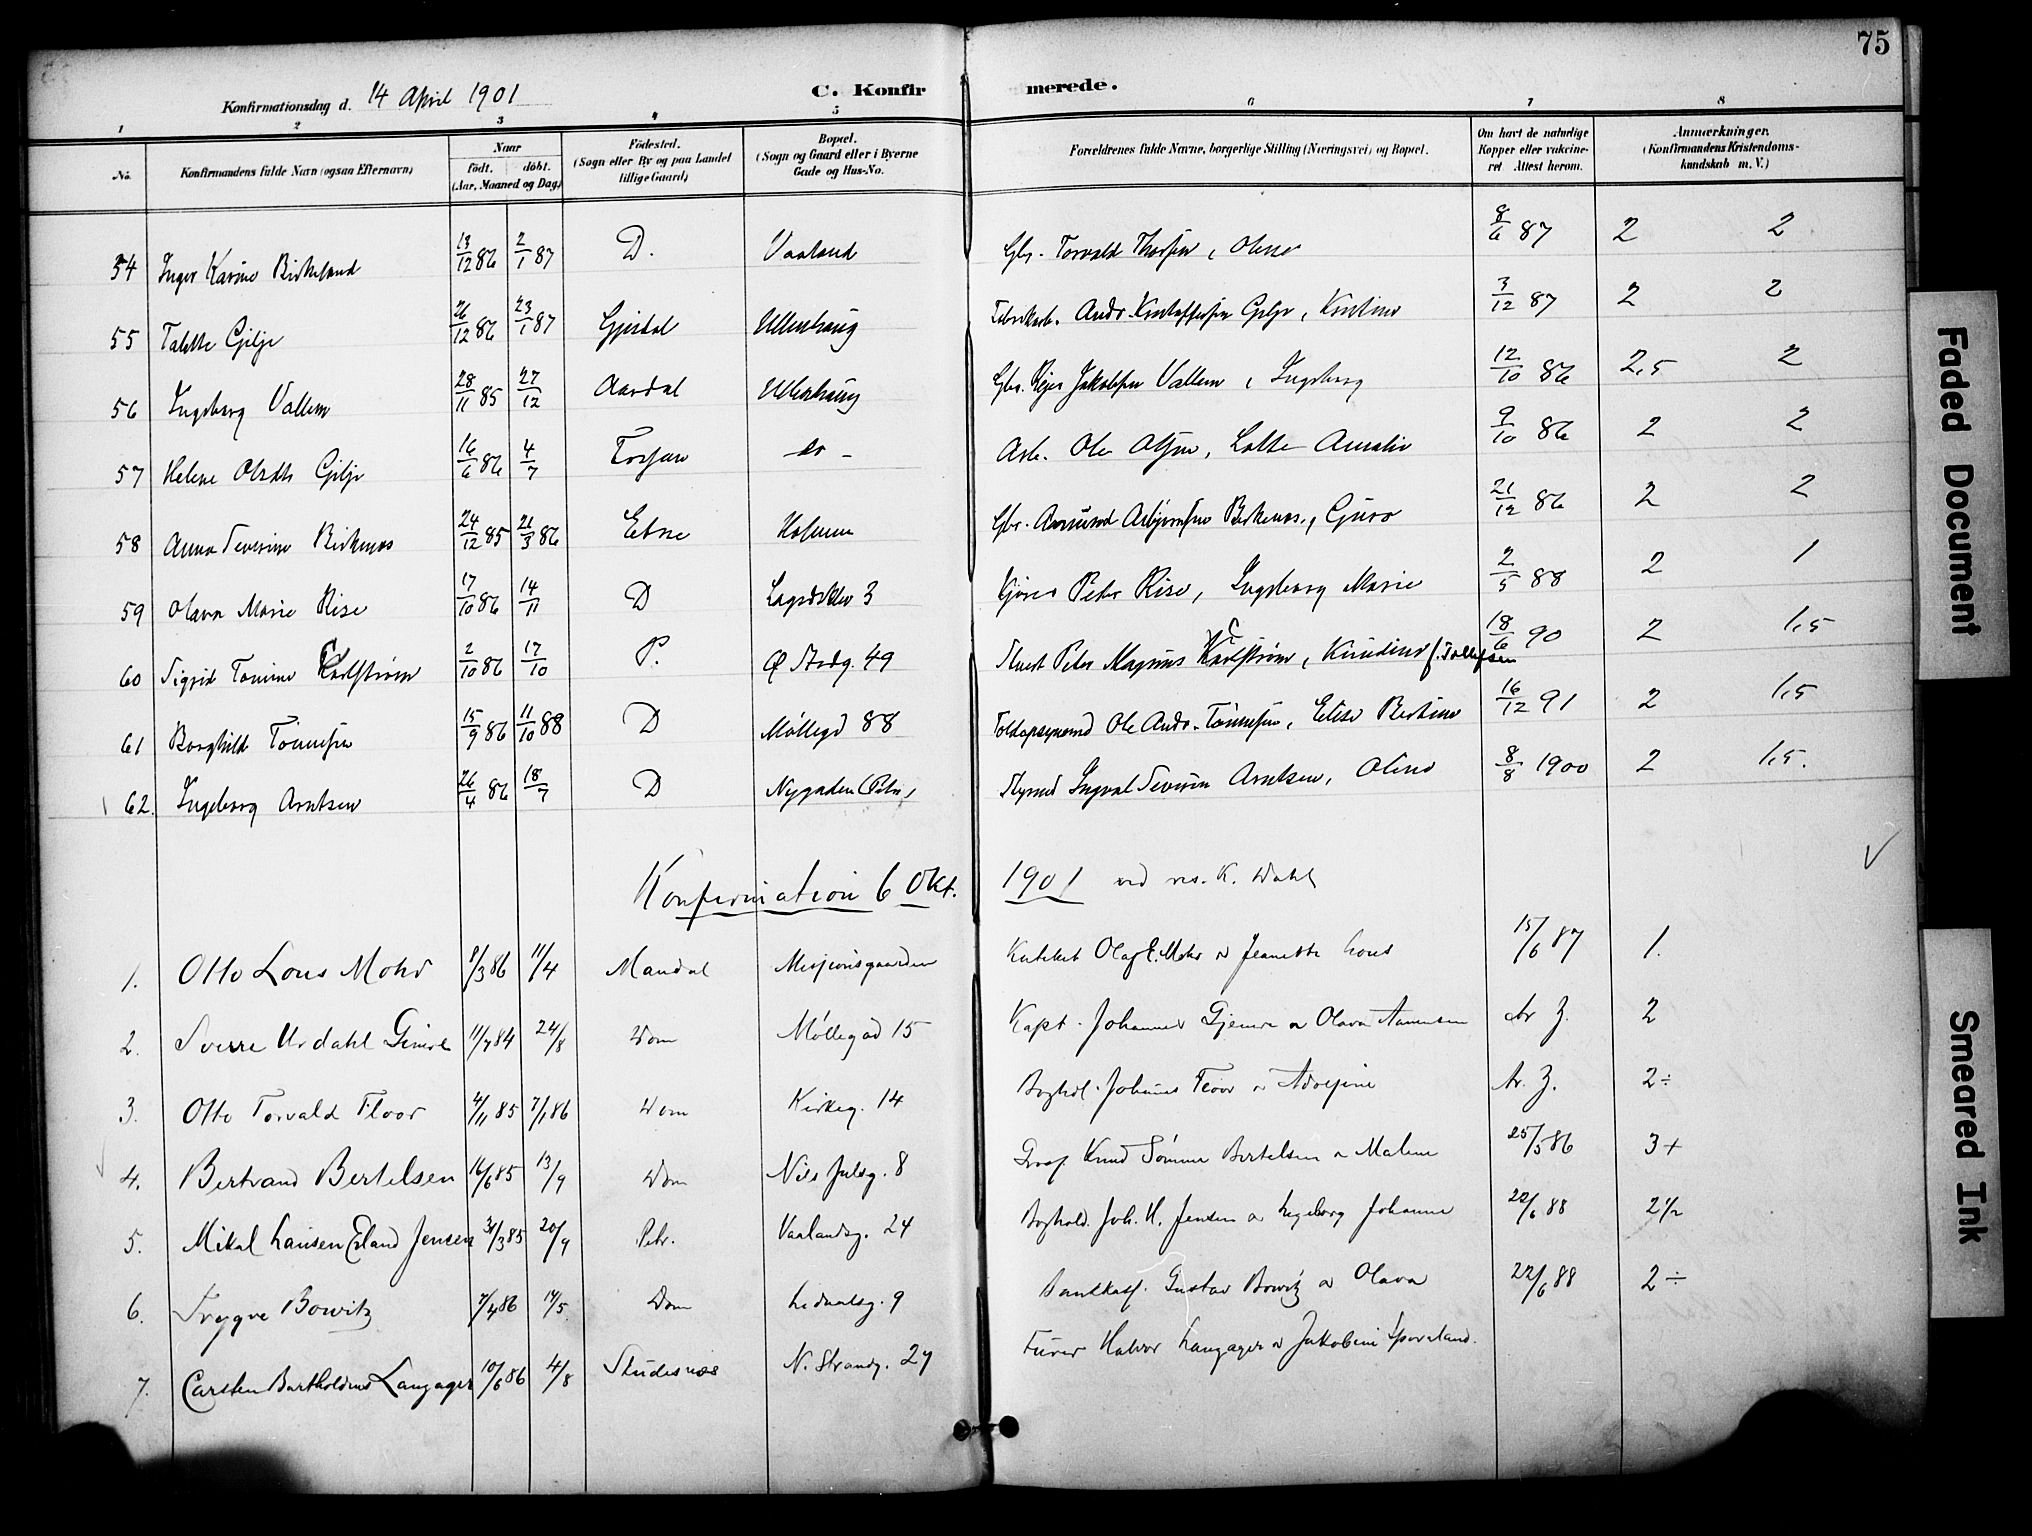 75
Konfirmationsdag d. 14 April 1901
C. Konfirmerede.
1 2 3 4 5 6 7 8
No. Konfirmandens fulde Navn (ogsaa Efternavn)
Naar födt. döbt. (Aar, Maaned og Dag)
Födested. (Sogn eller By og paa Landet tillige Gaard)
Bopæl. (Sogn og Gaard eller i Byerne Gade og Hus-No.
Forældrenes fulde Navne, borgerlige Stilling (Næringsvei) og Bopæl.
Om havt de naturlige Kopper eller vakcineret Attest herom.
Anmærkninger. (Konfirmandens Kristendomskundskab m. V.)
54 Inger Karine Birkeland 13/12 86 2/1 87 D. Vaaland Gbr. Torvald Thorsen, Olene 8/6 87 2 2
55 Talette Gilje 26/12 86 23/1 87 Gjesdal Ullenhaug Fabrikarb. Andr. Kristoffersen Gilje, Kristine 3/12 87 2 2
56 Ingeborg Vallem 28/11 85 27/12 Aardal Ullenhaug Gbr. Jakobsen Vallem, Ingeborg 12/10 86 2,5 2
57 Helene Olsdtr Gilje 16/6 86 4/7 Fossan do - Arb. Ole Olsen, Lotte Amalie 9/10 86 2 2
58 Anna Severine Birkenes 24/12 85 21/3 86 Etne Gbr. Aamund Asbjørnsen Birkenes, Guro 21/12 86 2 2
59 Olava Marie Rise 17/10 86 14/11 D 3 Kjører Peter Rise, Ingeborg Marie 2/5 88 2 1
60 Sigrid Tomine Carlström 2/10 86 17/10 P. Ø Strdg. 49 Peter Magnus Carlström, Knudine f. Tollefsen 18/6 90 2 1,5
61 Borghild Tönnesen 15/9 86 11/10 88 D Møllegd 88 Toldopsynsmd Ole Andr. Tönnesen, Elise Bertine 16/12 91 2 1,5
62. Ingeborg Arntsen 26/4 86 18/7 D Nygaden (Petri) Styrmd Ingval Severin Arntsen, Oline 8/8 1900 2 1,5.
Konfirmation 6 Okt. 1901 ved res. K. Wahl
1. Otto Lous Mohr 9/3 86 11/4 Mandal Misjonsgaarden Olaf E. Mohr o Jeanette Lous 15/6 87 1.
2. Sverre Urdahl Gimre 11/7 84 24/8 Dom Møllegad 15 Kapt. Johannes Gjemre o Olava Aanensen Av Z. 2
3. Otto Torvald Floor 4/11 85 7/1 86 Dom Kirkeg. 14 Boghdl. Johannes Floor o Adolfine Av. Z. 2÷
4. Bertrand Bertelsen 16/6 85 13/9 Dom Nils Julsg. 8 Gros. Knud Sömme Bertelsen o Malene 25/5 86 3+
5. Mikal Hansen Eland Jensen 31/3 85 20/9 Petr. Vaalandsg. 24 Boghold. Joh. H. Jensen o Ingeborg Johanne 22/6 88 2 1/2
6. Trygve Bowitz 7/4 86 14/5. Dom Ledaalsg. 9 Bankkass. Gustav Bowitz o Olava 22/6 88 2÷
7. Carsten Bartholdus Langager 10/6 86 4/8 Skudesnæs N. Strandg. 27 Furer Halvor Langager o Jakobine Spoveland.
Faded Document
Smeared Ink